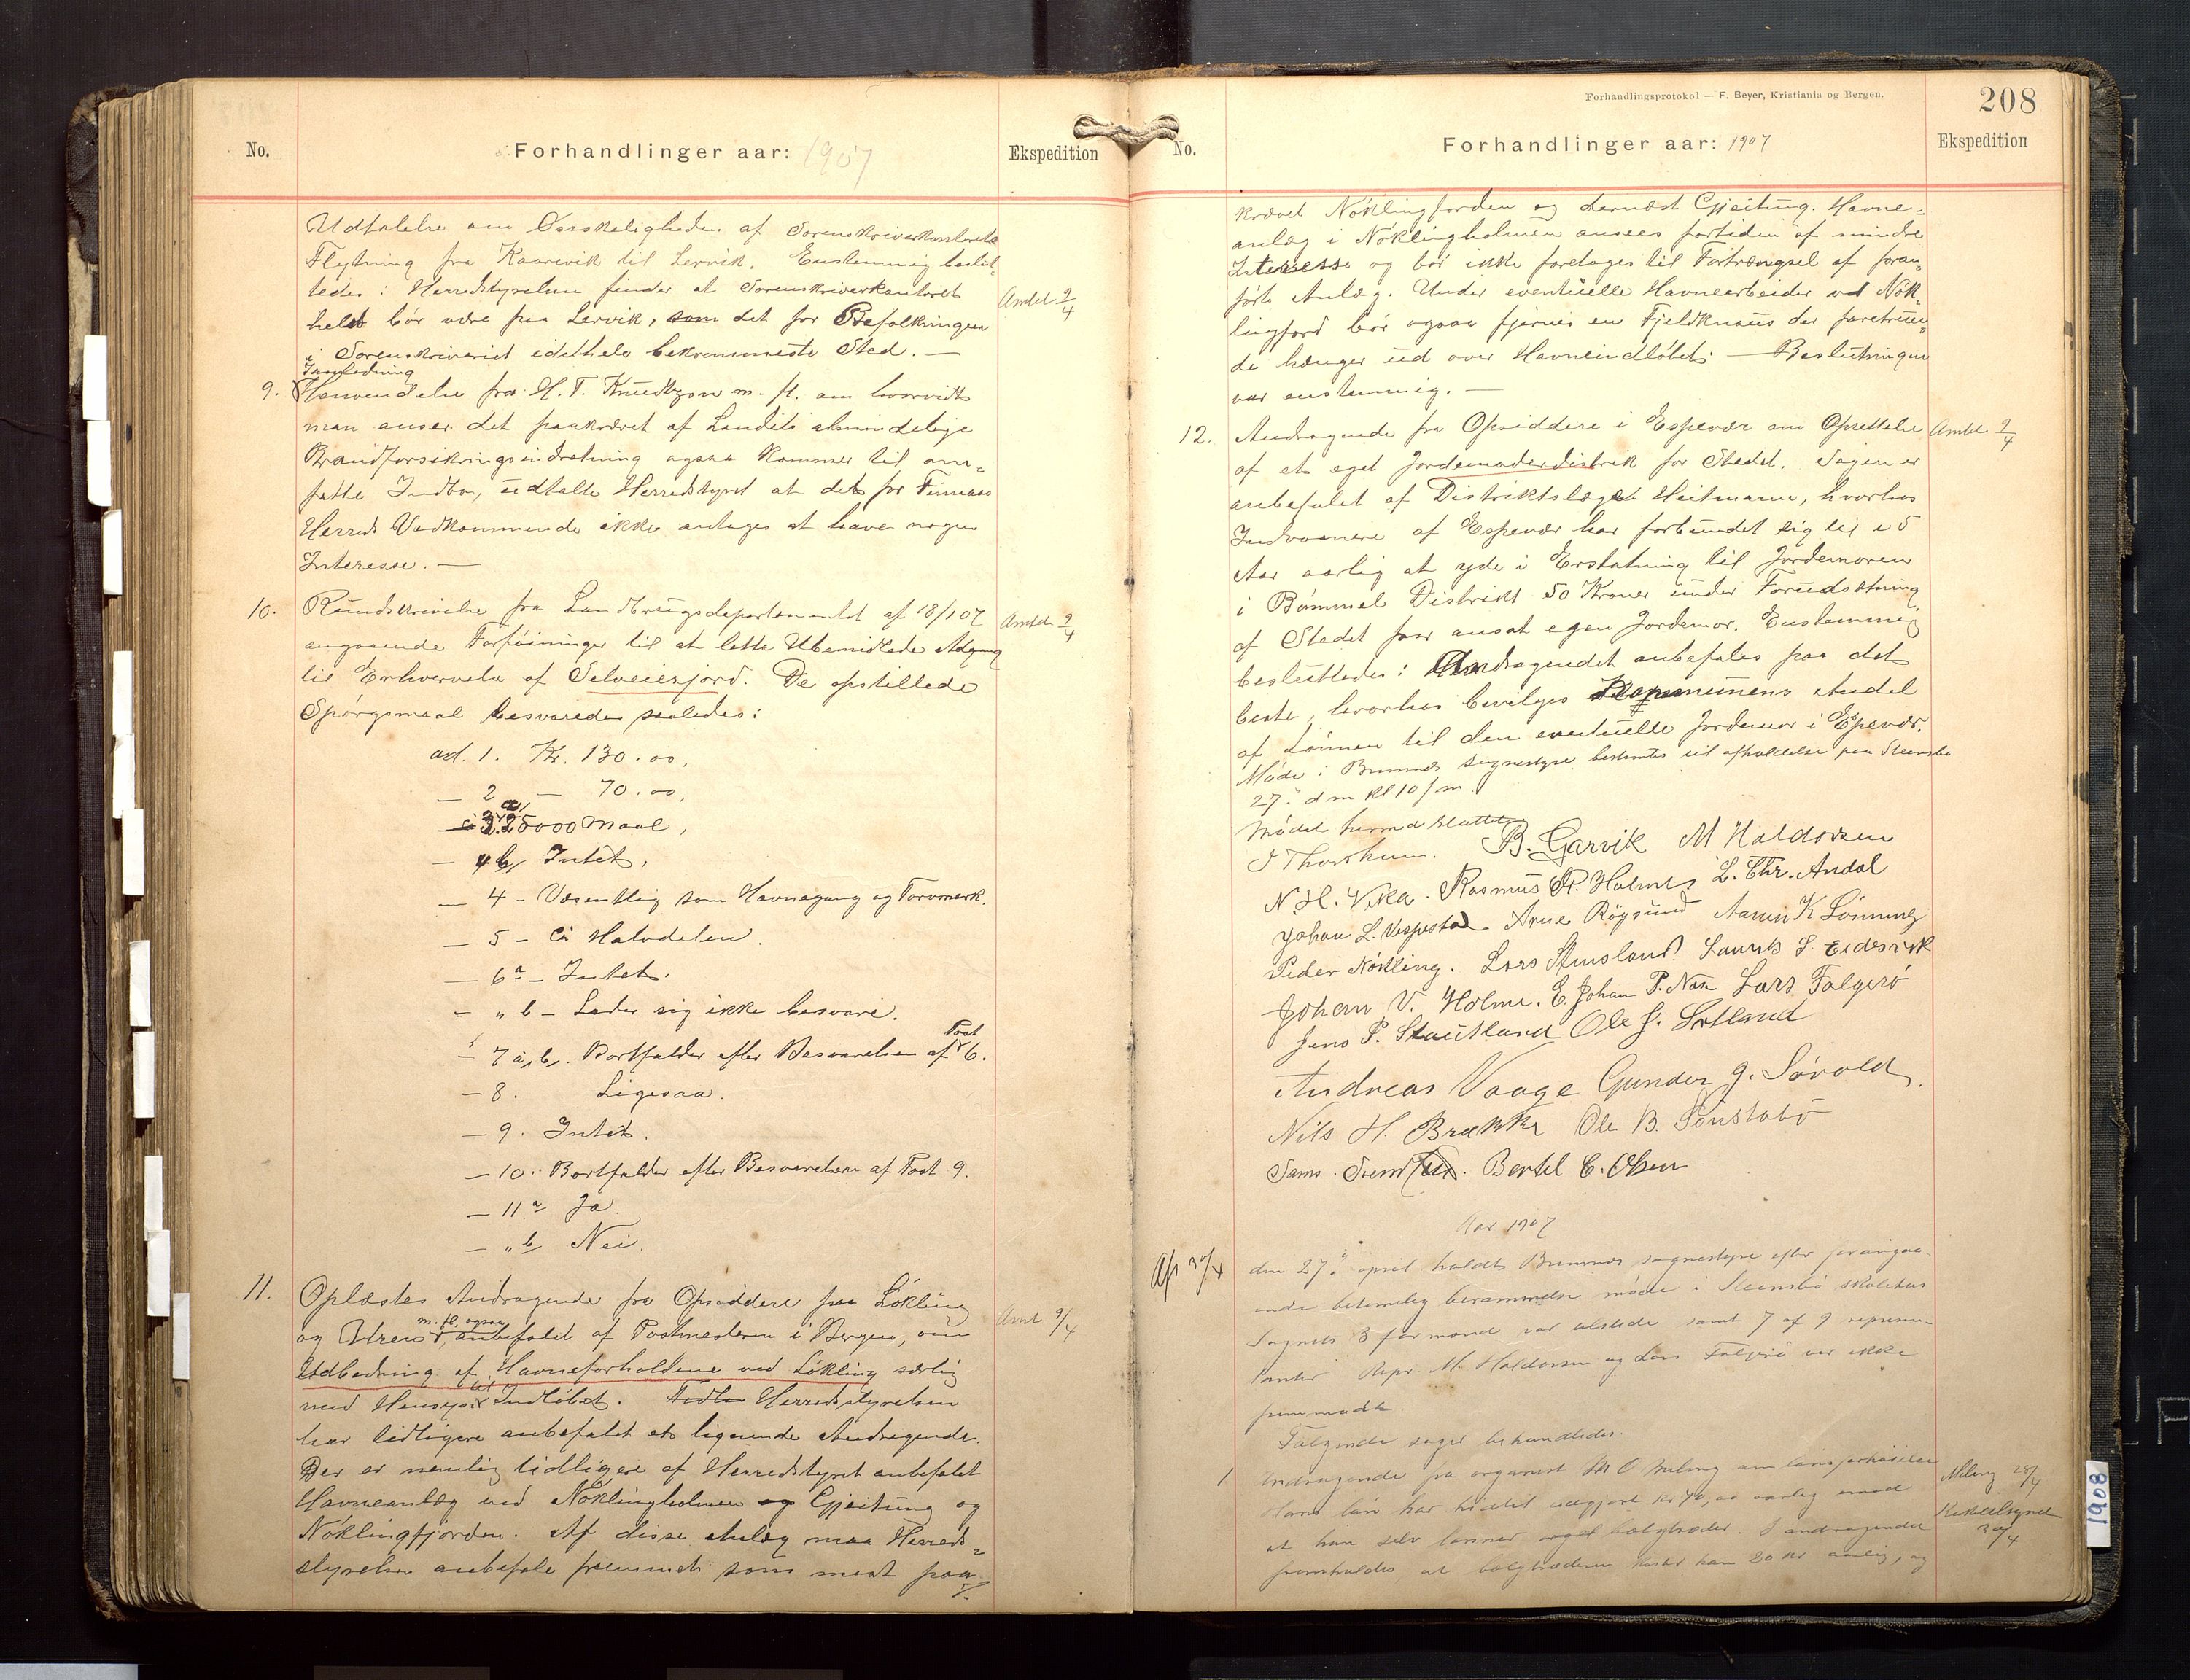 No.
Forhandlinger aar: 1907
Ekspedition
Udtalelse om Ønskeligheden af Sorenskriverkontorets
Flytning fra Kaarevik til Lervik. Enstemmig beslut-
tedes: Herredstyrelsen finder at Sorenskriverkontoret
Amtet 9/4
helst bør være paa Lervik, som det for Befolkningen
i Sorenskriveriet idethele bekvemmeste Sted. —
9. I Anledning
Henvendelse fra H. T. Knudtzon m. fl. om hvorvidt
man anser det paakrævet af Landets almindelige
Brandforsikringsindretning ogsaa kommer til om-
fatte Indbo, udtalte Herredstyret at det for Finnaas
Herreds Vedkommende ikke antages at have nogen
Interesse. —
10. Rundskrivelse fra Landbrugsdepartementet af 18/1 07
Amtet 9/4
angaaende Forføininger til at lette Ubemidlede Adgang
til Erhvervelse af Selveierjord. De opstillede
Spørgsmaal besvaredes saaledes:
ad. 1. Kr. 130.00,
— 2 — 70.00,
3 a, 25000 Maal,
— 4 b, Intet,
— 4 - Væsentlig som Havnegang og Torvmark.
— 5 - Ca Halvdelen.
— 6 a - Intet.
- " b - Lader sig ikke besvare.
— 7 a, b. Bortfalder efter Besvarelsen af Post 6.
— 8. Ligesaa.
— 9. Intet.
— 10. Bortfalder efter Besvarelsen af Post 9.
— 11 a Ja
— " b Nei.
11. Oplæstes Andragende fra Opsiddere paa Løkling
og m. fl. ogsaa anbefalet af Postmesteren i Bergen, om
Amt 9/4
Udbedring af Havneforholdene ved Løkling særlig
med Hensyn til Indløbet. Herredsstyrelsen
har tidligere anbefalet et lignende Andragende.
Der er nemlig tidligere af Herredstyret anbefalet
Havneanlæg ved Nøklingholmen og Gjeitung og
Nøklingfjorden. Af disse Anlæg maa Herreds-
styrelsen anbefale fremmet som mest paa-
Forhandlingsprotokol — F. Beyer, Kristiania og Bergen.
208
No.
Forhandlinger aar: 1907
Ekspedition
krævet Nøklingfjorden og dernæst Gjeitung. Havne-
anlæg i Nøklingholmen ansees fortiden af mindre
Interesse og bør ikke foretages til Fortrængsel af foran-
førte Anlæg. Under eventuelle Havnearbeider ved Nøk-
lingfjord bør ogsaa fjernes en Fjeldknaus der faretruen-
de hænger ud over Havneindløbet. — Beslutningen
var enstemmig. —
12. Andragende fra Opsiddere i Espevær om Oprettelse
Amtet 9/4
af et eget Jordemoderdistrik for Stedet. Sagen er
anbefalet af Distriktslæge Heitmann, hvorhos
Indvaanere af Espevær har forbundet sig til i 5
Aar aarlig at yde i Erstatning til Jordemoren
i Bømmel Distrikt 50 Kroner under Forudsætning
af Stedet faar ansat egen Jordemor. Enstemmig
besluttedes: Andragendet anbefales paa det
beste, hvorhos bevilges Kommunens Andel
af Lønnen til den eventuelle Jordemor i Espevær.
Møde i Bremnes Sognestyre bestemtes til afholdelse paa Steensbø
27. dm kl 10 fm.
Mødet hermed sluttet
B. Garvik M Haldorsen
N. H. Vika. Rasmus R. Holme L. Chr. Andal
Johan L. Vespestad Arne Røgsund Aamund K Lønning
Peder Nøkling. Lars Stusland Laurits S. Eidesvik
Johan V. Holme. E. Johan P. Næs Lars Folgerø
Jens P. Stautland Ole J. Sætland
Andreas Vaage Gunder J. Søvold
Nils H. Brække Ole B. Sønstabø
Bertel C. Olsen
Aar 1907
Afs 30/4
den 27. april holdt Bremnes sognestyre efter forangaa-
ende betimelig berammelse møde i Steensbø skolehus
Sognets formænd var tilstede samt 7 af 9 repræsen-
tanter. Repr M. Haldorsen og Lars Folgerø var ikke
fremmødte.
Følgende sager behandledes.
1 Andragende fra organist M O Meling om lønsforhøielse
Meling 28/4
Hans løn har hidtil udgjort kr 40,00 aarlig imod
Kirketilsynet 30/4
at han selv lønner eget bælgtræder. I andragendet
fremholdes, at bælgtræderen koster ham 20 kr aarlig, og
1908